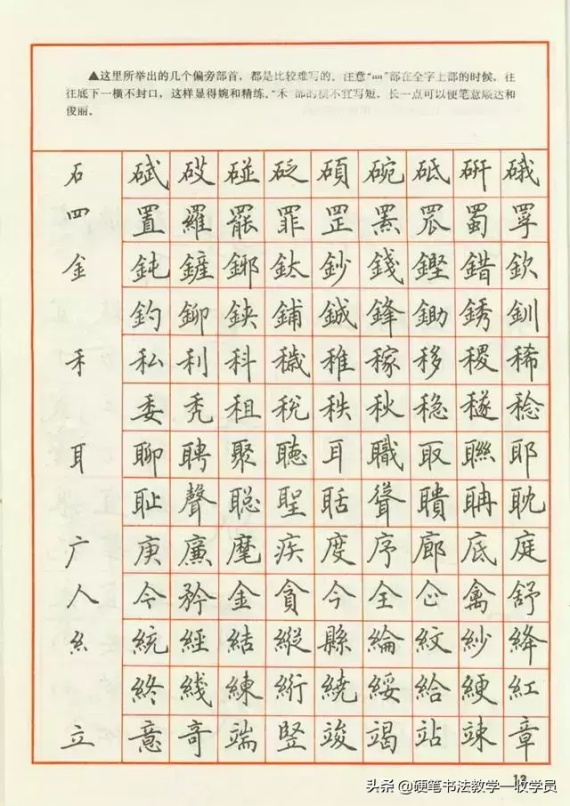 ▲这里所举出的几个偏旁部首，都是比较难写的。注意“罒”部在全字上部的时候，往
往底下一横不封口，这样显得婉和精练。“禾”部的横不宜写短，长一点可以使笔意顺达和
俊丽。
石 碔 砹 碰 砭 碩 碗 砥 研 硪
罒 置 羅 罷 罪 罡 罴 罛 蜀 罦
金 鈍 鏟 鎯 鈦 鈔 錢 鏗 錯 欽
釣 鉚 鋏 鋪 鋮 鋒 鋤 銹 釧
禾 私 利 科 穢 稚 稼 移 稷 稀
委 秃 租 税 秩 秋 稳 稔
耳 聊 聘 聚 聴 耳 職 取 聯 耶
耻 聲 聪 聖 聒 聳 聵 聃 耽
广 庚 廉 麾 疾 度 序 廊 底 庭
人 今 矜 金 貪 今 全 企 禽 舒
糹 統 經 結 縱 縣 綸 紋 紗 絳
終 綫 練 絎 繞 綏 給 綆 紅
立 意 奇 端 竪 竣 竭 站 竦 章
13
头条 @硬笔书法教学一收学员